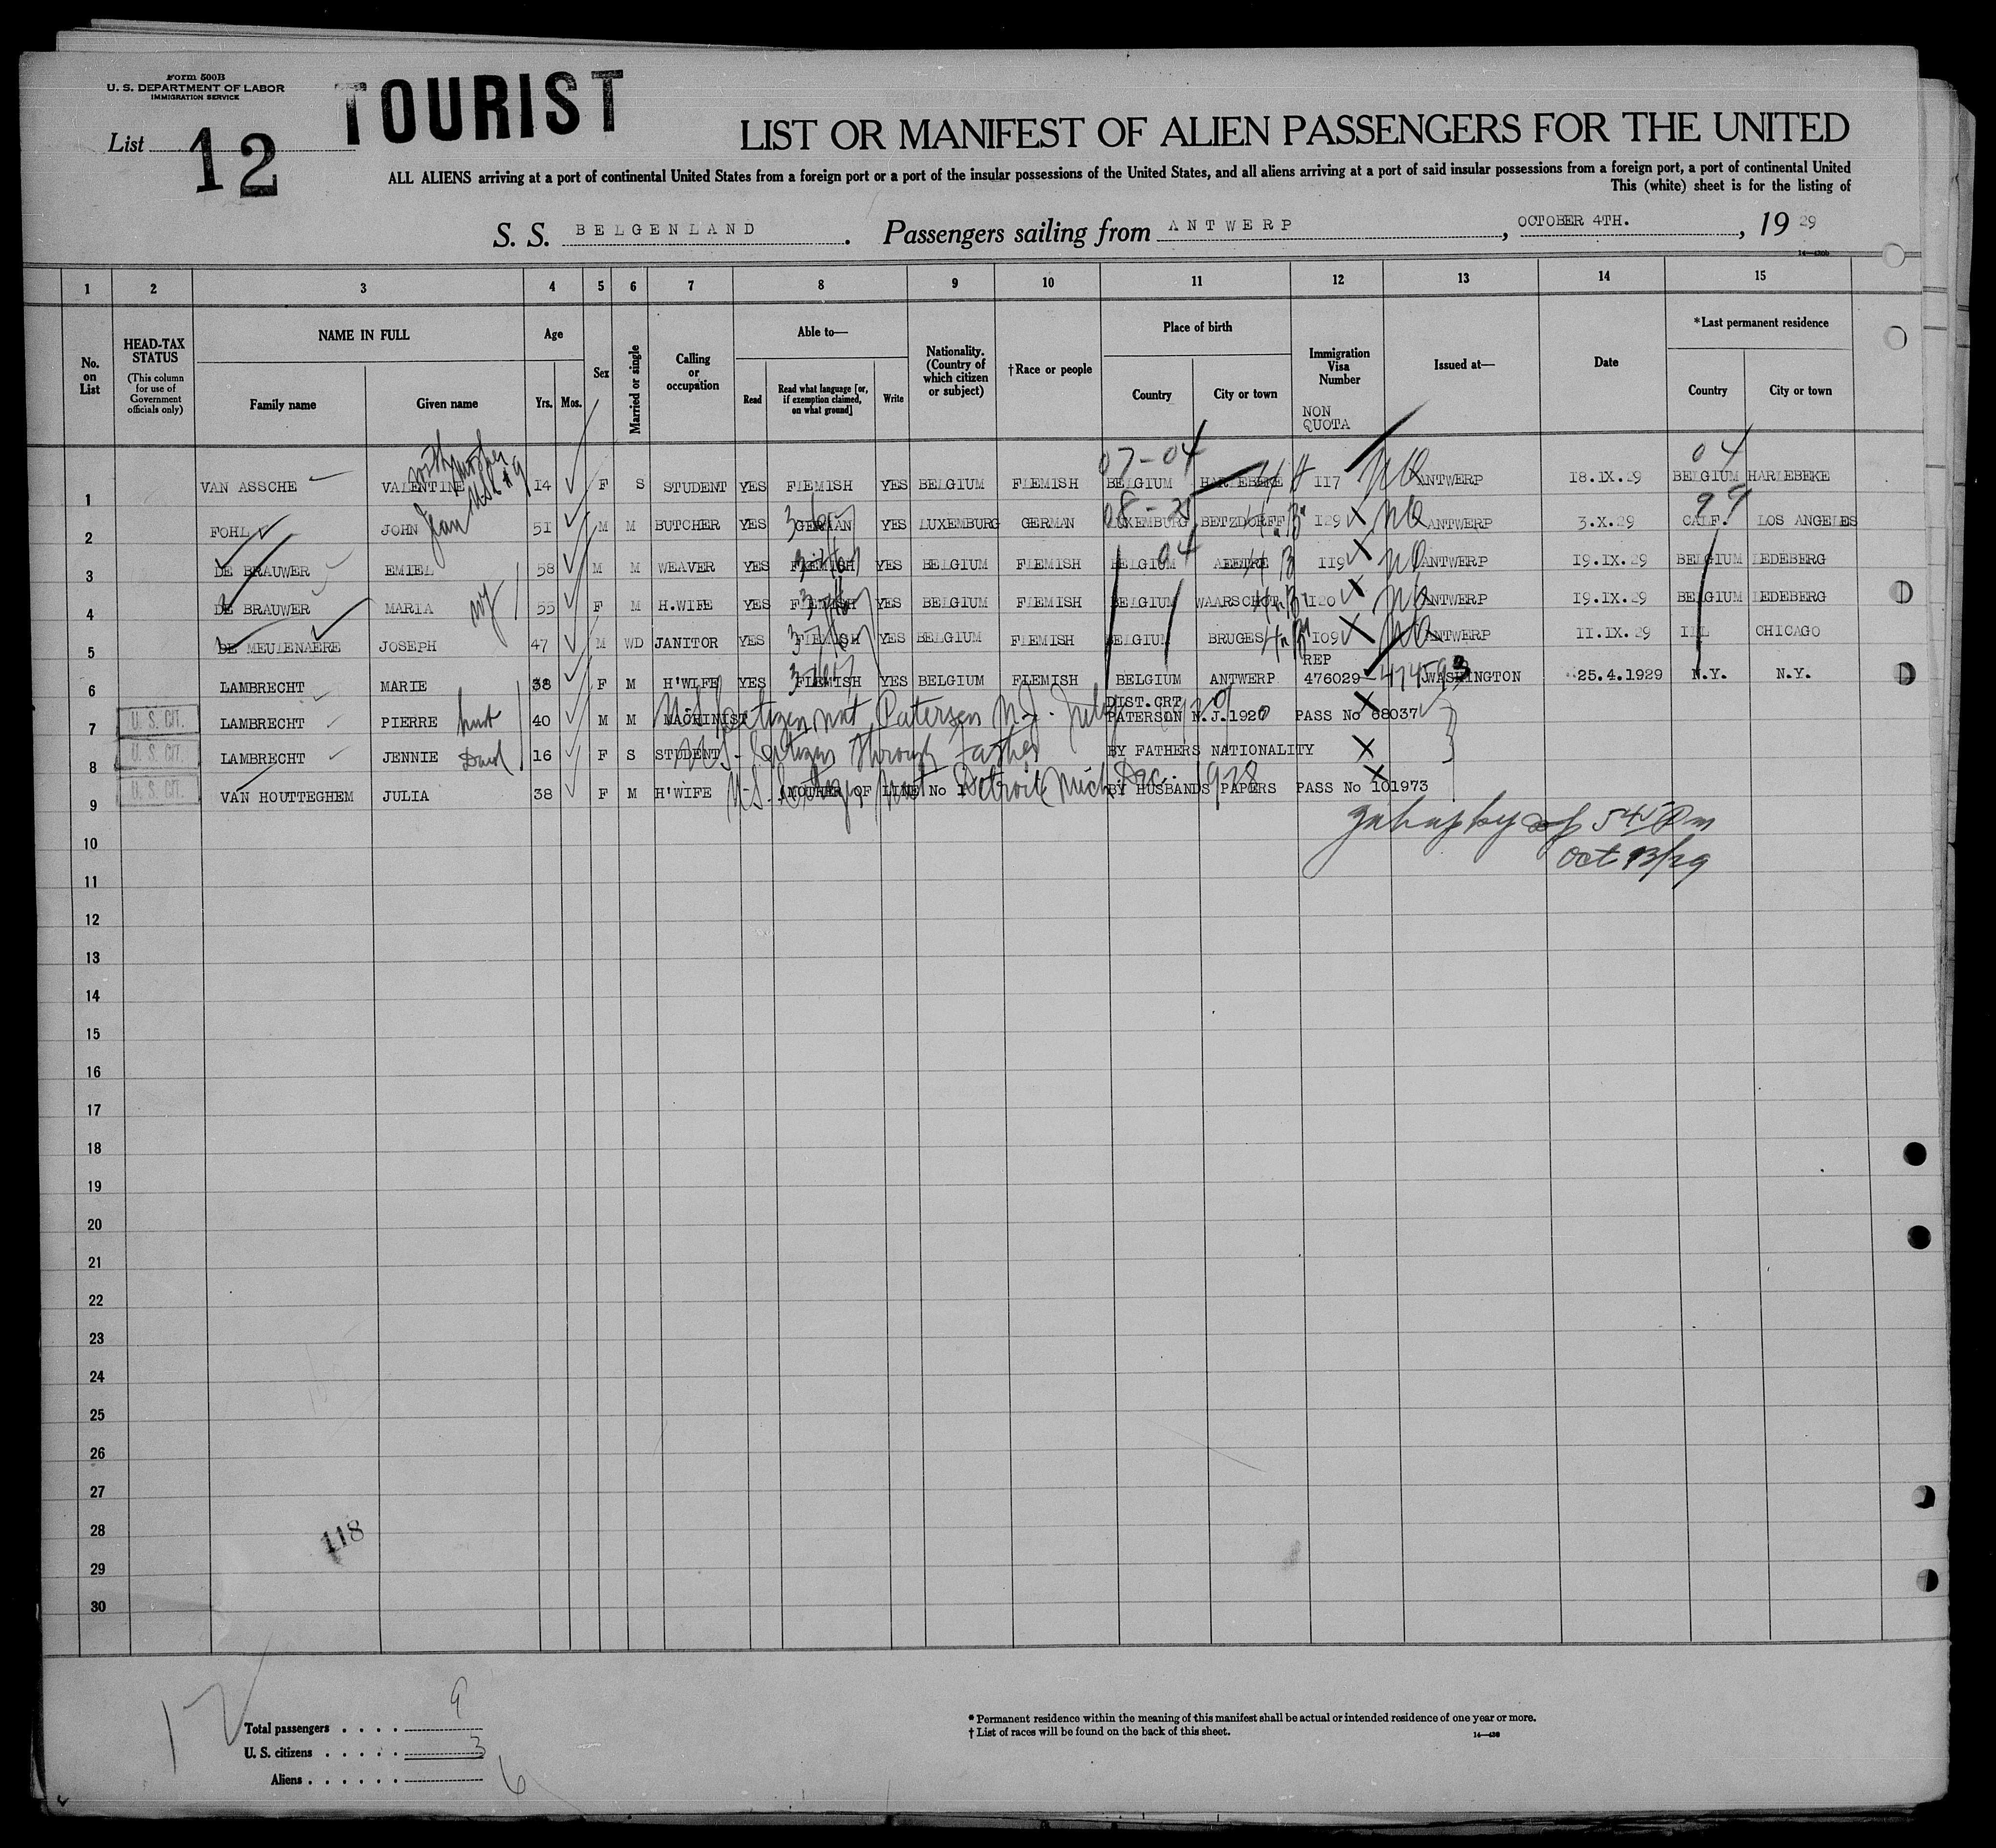 Form 500B
U. S. DEPARTMENT OF LABOR
IMMIGRATION SERVICE
TOURIST
List 12
LIST OR MANIFEST OF ALIEN PASSENGERS FOR THE UNITED
ALL ALIENS arriving at a port of continental United States from a foreign port or a port of the insular possessions of the United States, and all aliens arriving at a port of said insular possessions from a foreign port, a port of continental United
This (white) sheet is for the listing of
S. S. BELGENLAND. Passengers sailing from ANTWERP, OCTOBER 4TH., 19 29
14—430b
1 2 3 4 5 6 7 8 9 10 11 12 13 14 15
No. on List
HEAD-TAX STATUS (This column for use of Government officials only)
NAME IN FULL
Family name Given name
Age
Yrs. Mos.
Sex
Married or single
Calling or occupation
Able to—
Read
Read what language [or, if exemption claimed, on what ground]
Write
Nationality. (Country of which citizen or subject)
†Race or people
Place of birth
Country City or town
Immigration Visa Number
NON QUOTA
Issued at—
Date
*Last permanent residence
Country City or town
with mother
07-04 04
1 VAN ASSCHE VALENTINE 14 F S STUDENT YES FLEMISH YES BELGIUM FLEMISH BELGIUM HARLEBEKE 117 NQ ANTWERP 18.IX.29 BELGIUM HARLEBEKE
2 FOHL JOHN Jean 51 M M BUTCHER YES GERMAN YES LUXEMBURG GERMAN LUXEMBURG BETZDORFF 129 NQ ANTWERP 3.X.29 CALF. 99 LOS ANGELES
3 DE BRAUWER EMIEL 58 M M WEAVER YES FLEMISH YES BELGIUM FLEMISH BELGIUM 04 AELTRE 119 NQ ANTWERP 19.IX.29 BELGIUM LEDEBERG
4 DE BRAUWER MARIA wf 55 F M H.WIFE YES FLEMISH YES BELGIUM FLEMISH BELGIUM WAARSCHOT 120 NQ ANTWERP 19.IX.29 BELGIUM LEDEBERG
5 DE MEULENAERE JOSEPH 47 M WD JANITOR YES FLEMISH YES BELGIUM FLEMISH BELGIUM BRUGES 109 NQ ANTWERP 11.IX.29 ILL CHICAGO
6 LAMBRECHT MARIE 38 F M H'WIFE YES FLEMISH YES BELGIUM FLEMISH BELGIUM ANTWERP REP 476029 WASHINGTON 25.4.1929 N.Y. N.Y.
7 U. S. CIT. LAMBRECHT PIERRE husb 40 M M MACHINIST U.S. Citizen nat Paterson N.J. July 1920 DIST.CRT PATERSON N.J.1920 PASS No 68037
8 U. S. CIT. LAMBRECHT JENNIE 16 F S STUDENT U.S. Citizen through Father BY FATHERS NATIONALITY
9 U. S. CIT. VAN HOUTTEGHEM JULIA 38 F M H'WIFE (MOTHER OF LINE No 1 U.S. Citizen nat Detroit Mich Dec. 1928 BY HUSBANDS PAPERS PASS No 101973
10
Oct 13/29
11
12
13
14
15
16
17
18
19
20
21
22
23
24
25
26
27
28
118
29
30
12
Total passengers . . . . 9
U. S. citizens . . . . . 3
Aliens . . . . . . 6
* Permanent residence within the meaning of this manifest shall be actual or intended residence of one year or more.
† List of races will be found on the back of this sheet.
14—430